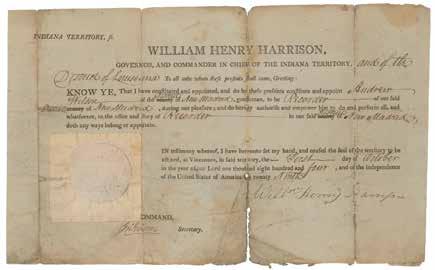 INDIANA TERRITORY, ss.
WILLIAM HENRY HARRISON,
GOVERNOR, AND COMMANDER IN CHIEF OF THE INDIANA TERRITORY, and of the
District of Louisiana To all who these presents shall come, Greeting:
KNOW YE, That I have constituted and appointed, and do by these presents constitute and appoint Andrew
Wilson of the county of New Madrid, gentleman, to be Recorder of our said
of New Madrid during our pleasure; and do hereby authorise and empower him to do and perform all, and
whatsoever, to the office and duty of Recorder in our said of New Madrid
doth any ways belong or appertain.
IN testimony whereof, I have hereunto set my hand, and caused the seal of the territory to be
affixed, at Vincennes, in said territory, the First day of October
in the year of our Lord one thousand eight hundred and four, and of the independence
of the United States of America the twenty Ninth
Willm Henry Harrison
COMMAND,
Jn Gibson Secretary.